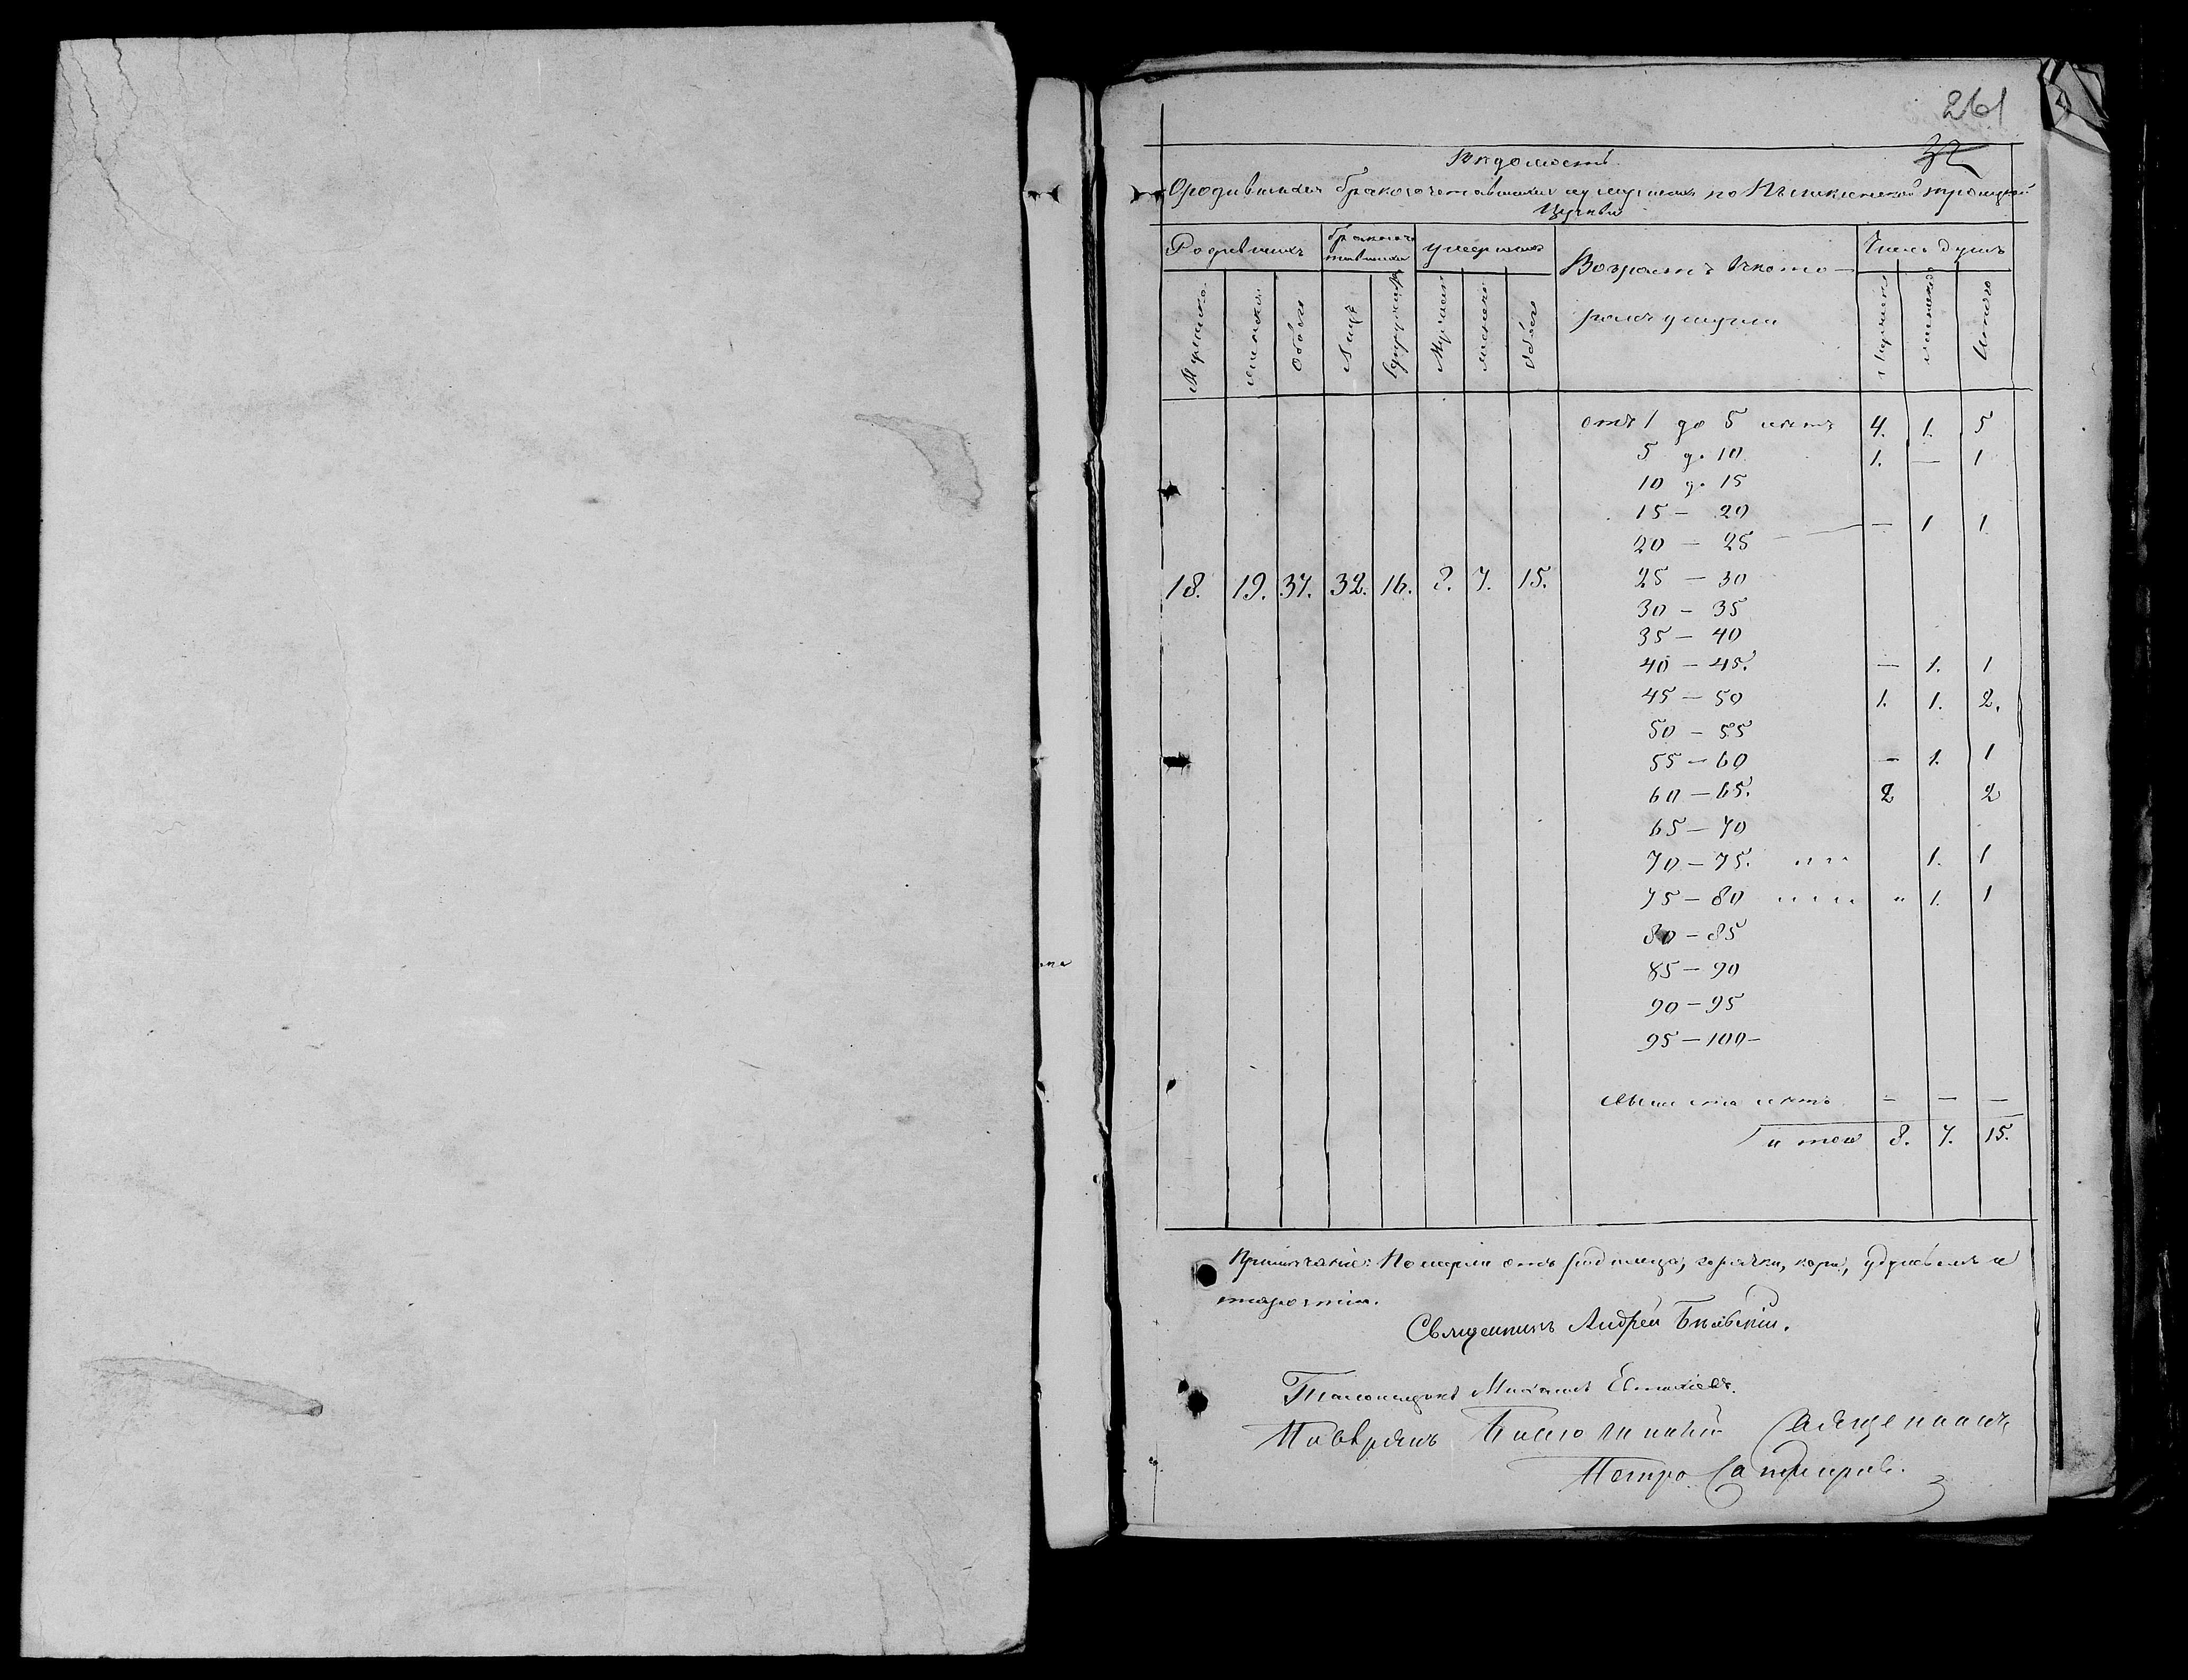 261
32
Вѣдомость
О родившихся бракосочетавшихся и умершихъ по троицкой
Церкви
Родившихъ бракосоче- умершихъ Возрастъ въ кото- Число душъ
тавшихся
Мужеска женска обоего Лицъ Супружествъ Мужеска женска обоего рыхъ умерли мужеска женска Итого
отъ 1 до 5 летъ 4. 1. 5
5 до 10 1. — 1
10 до 15
15 — 20 — 1 1
20 — 25
18. 19. 37. 32. 16. 8. 7. 15. 25 — 30
30 — 35
35 — 40
40 — 45. — 1. 1
45 — 50 1. 1. 2.
50 — 55
55 — 60 — 1. 1
60 — 65. 2 2
65 — 70
70 — 75. „ „ 1. 1
75 — 80 „ „ „ 1. 1
80 — 85
85 — 90
90 — 95
95 — 100 —
свыше ста летъ — — —
итого 8. 7. 15.
Примѣчание: Померли отъ родимца, горячки, кори, и
старости.
Священникъ Андрей Бѣлявскій.
Пономарь Михаилъ Евтихіевъ.
Повѣрялъ Благочинный Священникъ
Петро